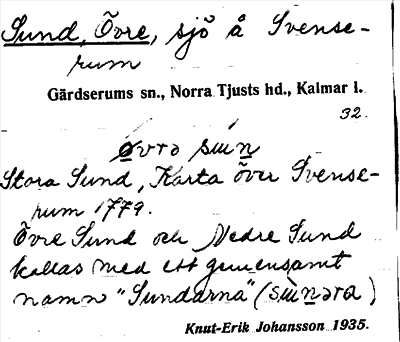 Sund, Övre, sjö å Svense-
rum
Gärdserums sn., Norra Tjusts hd., Kalmar l.
32.
øvrə sɯn
Stora Sund, Karta över Svense-
rum 1779.
Övre Sund och Nedre Sund
kallas med ett gemensamt
namn "Sundarna" (sɯnəra)
Knut-Erik Johansson 1935.